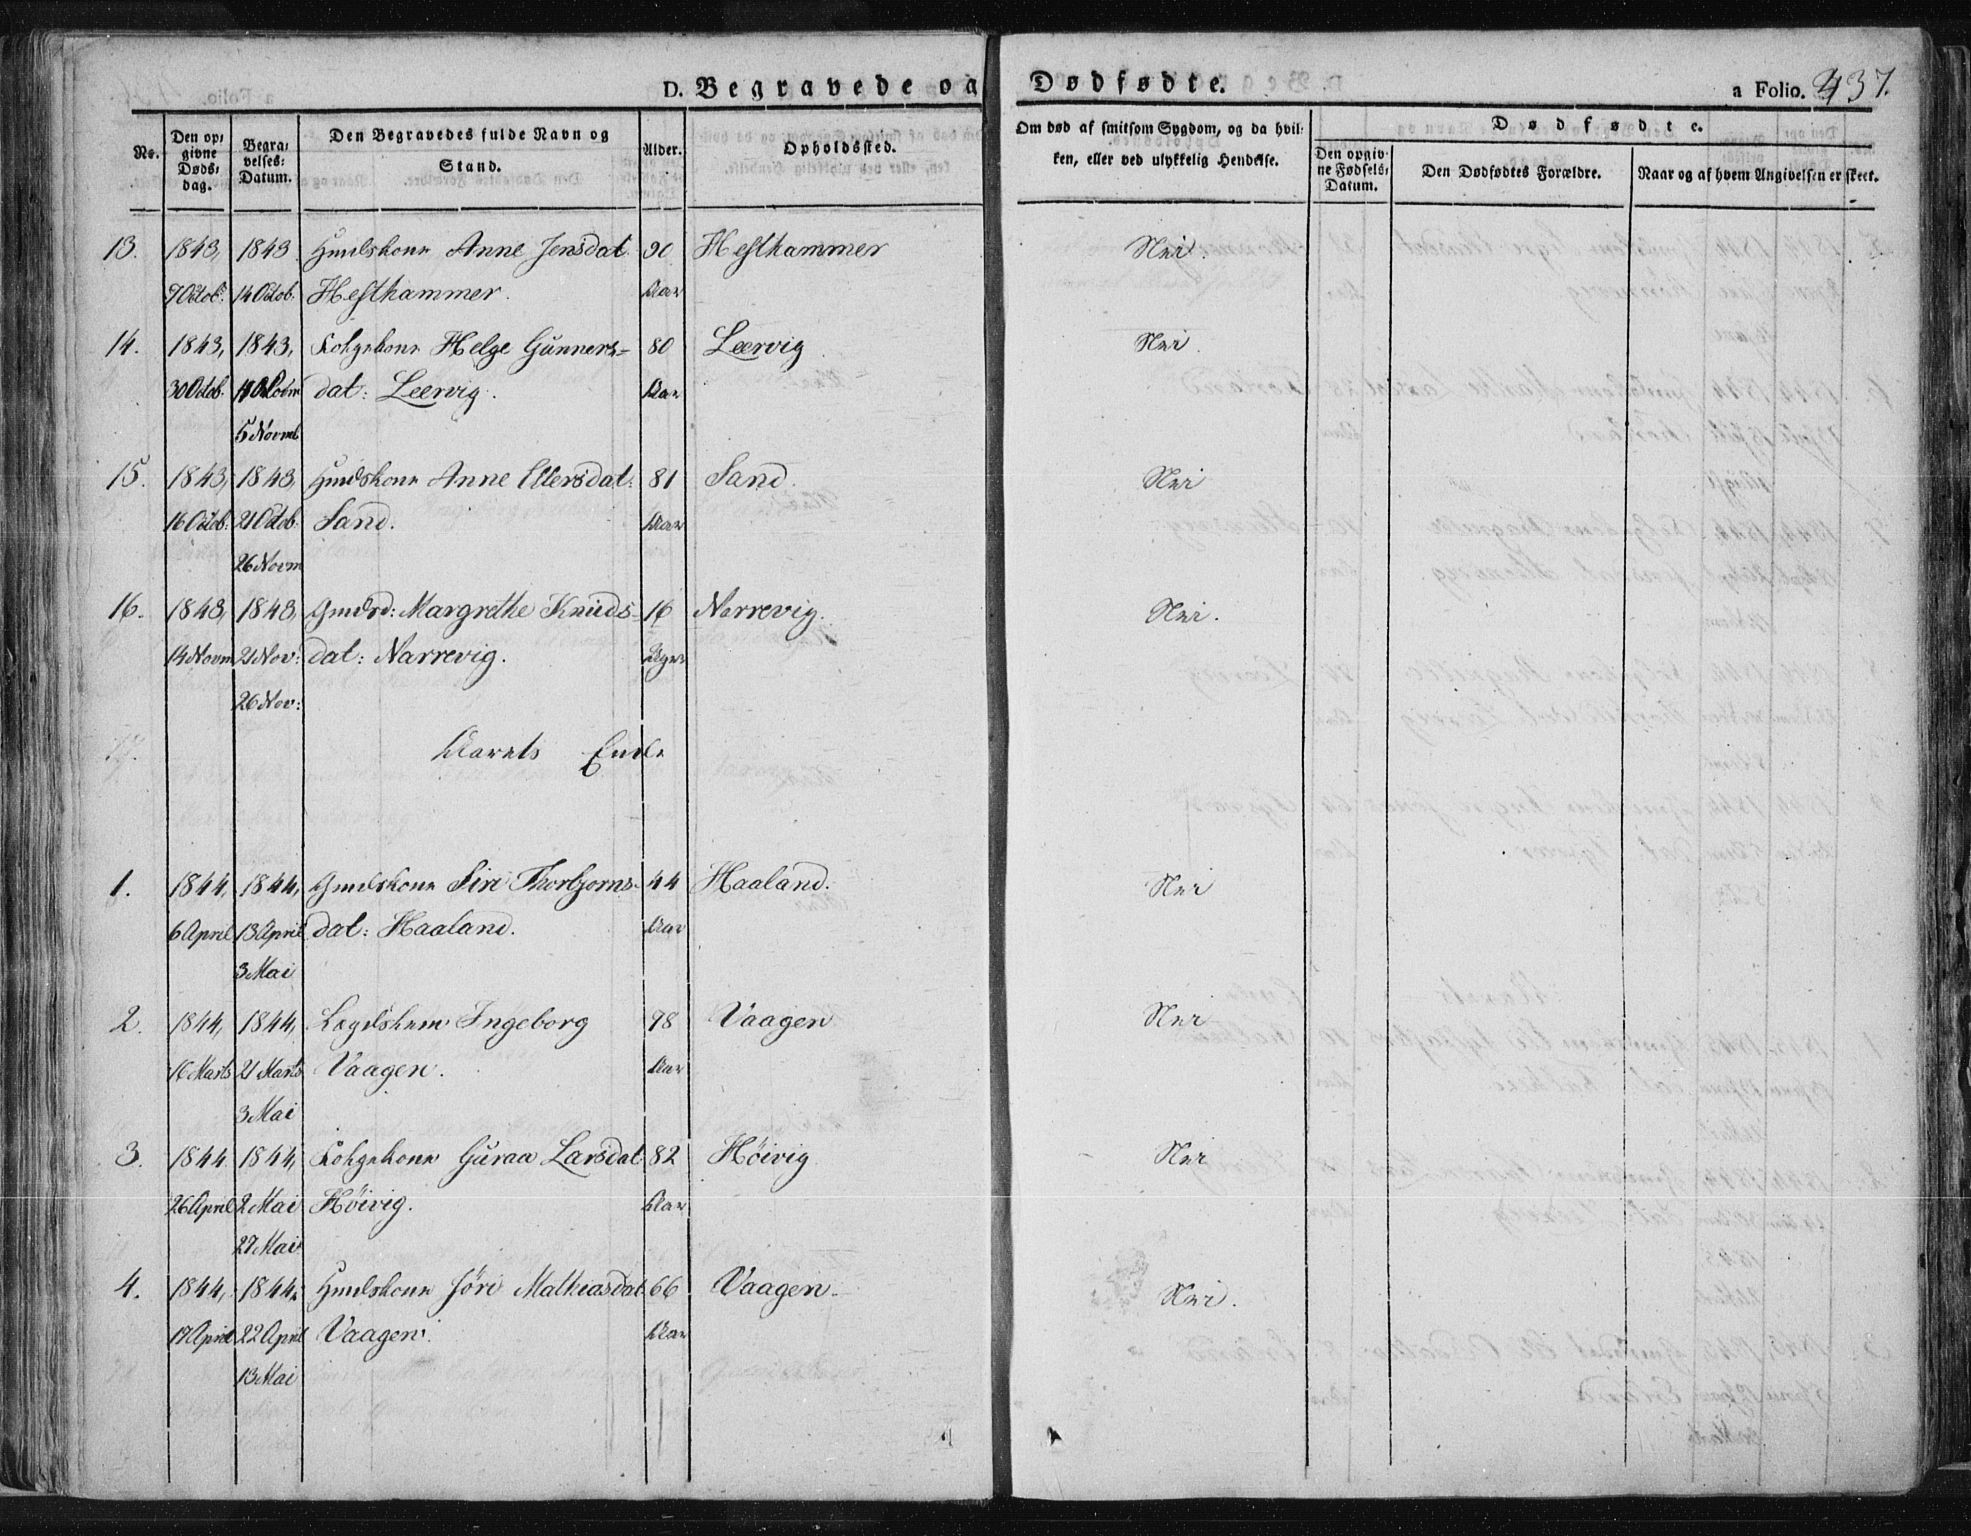 D. Begravede og Dødfødte.
a Folio. 437.
No.
Den op-
givne
Døds-
dag.
Begra-
velses-
Datum.
Den Begravedes fulde Navn og
Stand.
Alder.
Opholdssted.
Om død af smitsom Sygdom, og da hvil-
ken, eller ved ulykkelig Hendelse.
Dødfødte.
Den opgiv-
ne Fødsels-
Datum.
Den Dødfødtes Forældre.
Naar og af hvem Angivelsen er skeet.
13. 1843, 1843 Huuskone Anne Jensdat. 90 Hesthammer Nei.
7 Octob. 14 Octob. Hesthammer. Aar
14. 1843, 1843, Helge Gunners- 80 Leervig Nei.
30 Octob. dat: Leervig. Aar
5 Novmb
15. 1843, 1843, Anne Ellersdat. 81 Sand. Nei
16 Octob. 21 Octob. Sand. Aar
26 Novm
16. 1843, 1843 Margrethe Knuds- 16 Narrevig. Nei.
14 Novm 21 Nov: dat: Narrevig.
26 Nov:
Aarets Ende
1. 1844, 1844, Siri Thorbjorns- 44 Haaland. Nei
6 April 13 April dat: Haaland. Aar
3 Mai
2. 1844, 1844, Ingeborg 98 Vaagen Nei
16 Marts 21 Marts Vaagen. Aar
3 Mai
3. 1844 1844, Guraa Larsdat 82 Høivig Nei
26 April 2 Mai Høivig. Aar
27 Mai
4. 1844, 1844, Jöri Mathiasdat 66 Vaagen. Nei.
17 April 22 April Vaagen. Aar
13 Mai